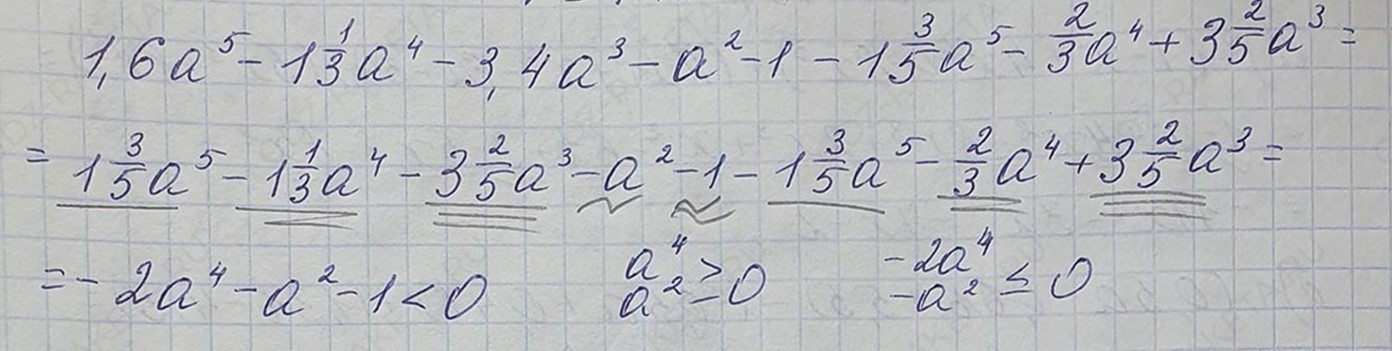 1,6a⁵ - 1 1/3 a⁴ - 3,4a³ - a² - 1 - 1 3/5 a⁵ - 2/3 a⁴ + 3 2/5 a³ =
= 1 3/5 a⁵ - 1 1/3 a⁴ - 3 2/5 a³ - a² - 1 - 1 3/5 a⁵ - 2/3 a⁴ + 3 2/5 a³ =
= - 2a⁴ - a² - 1 < 0 a⁴ a² ≥ 0 -2a⁴ -a² ≤ 0